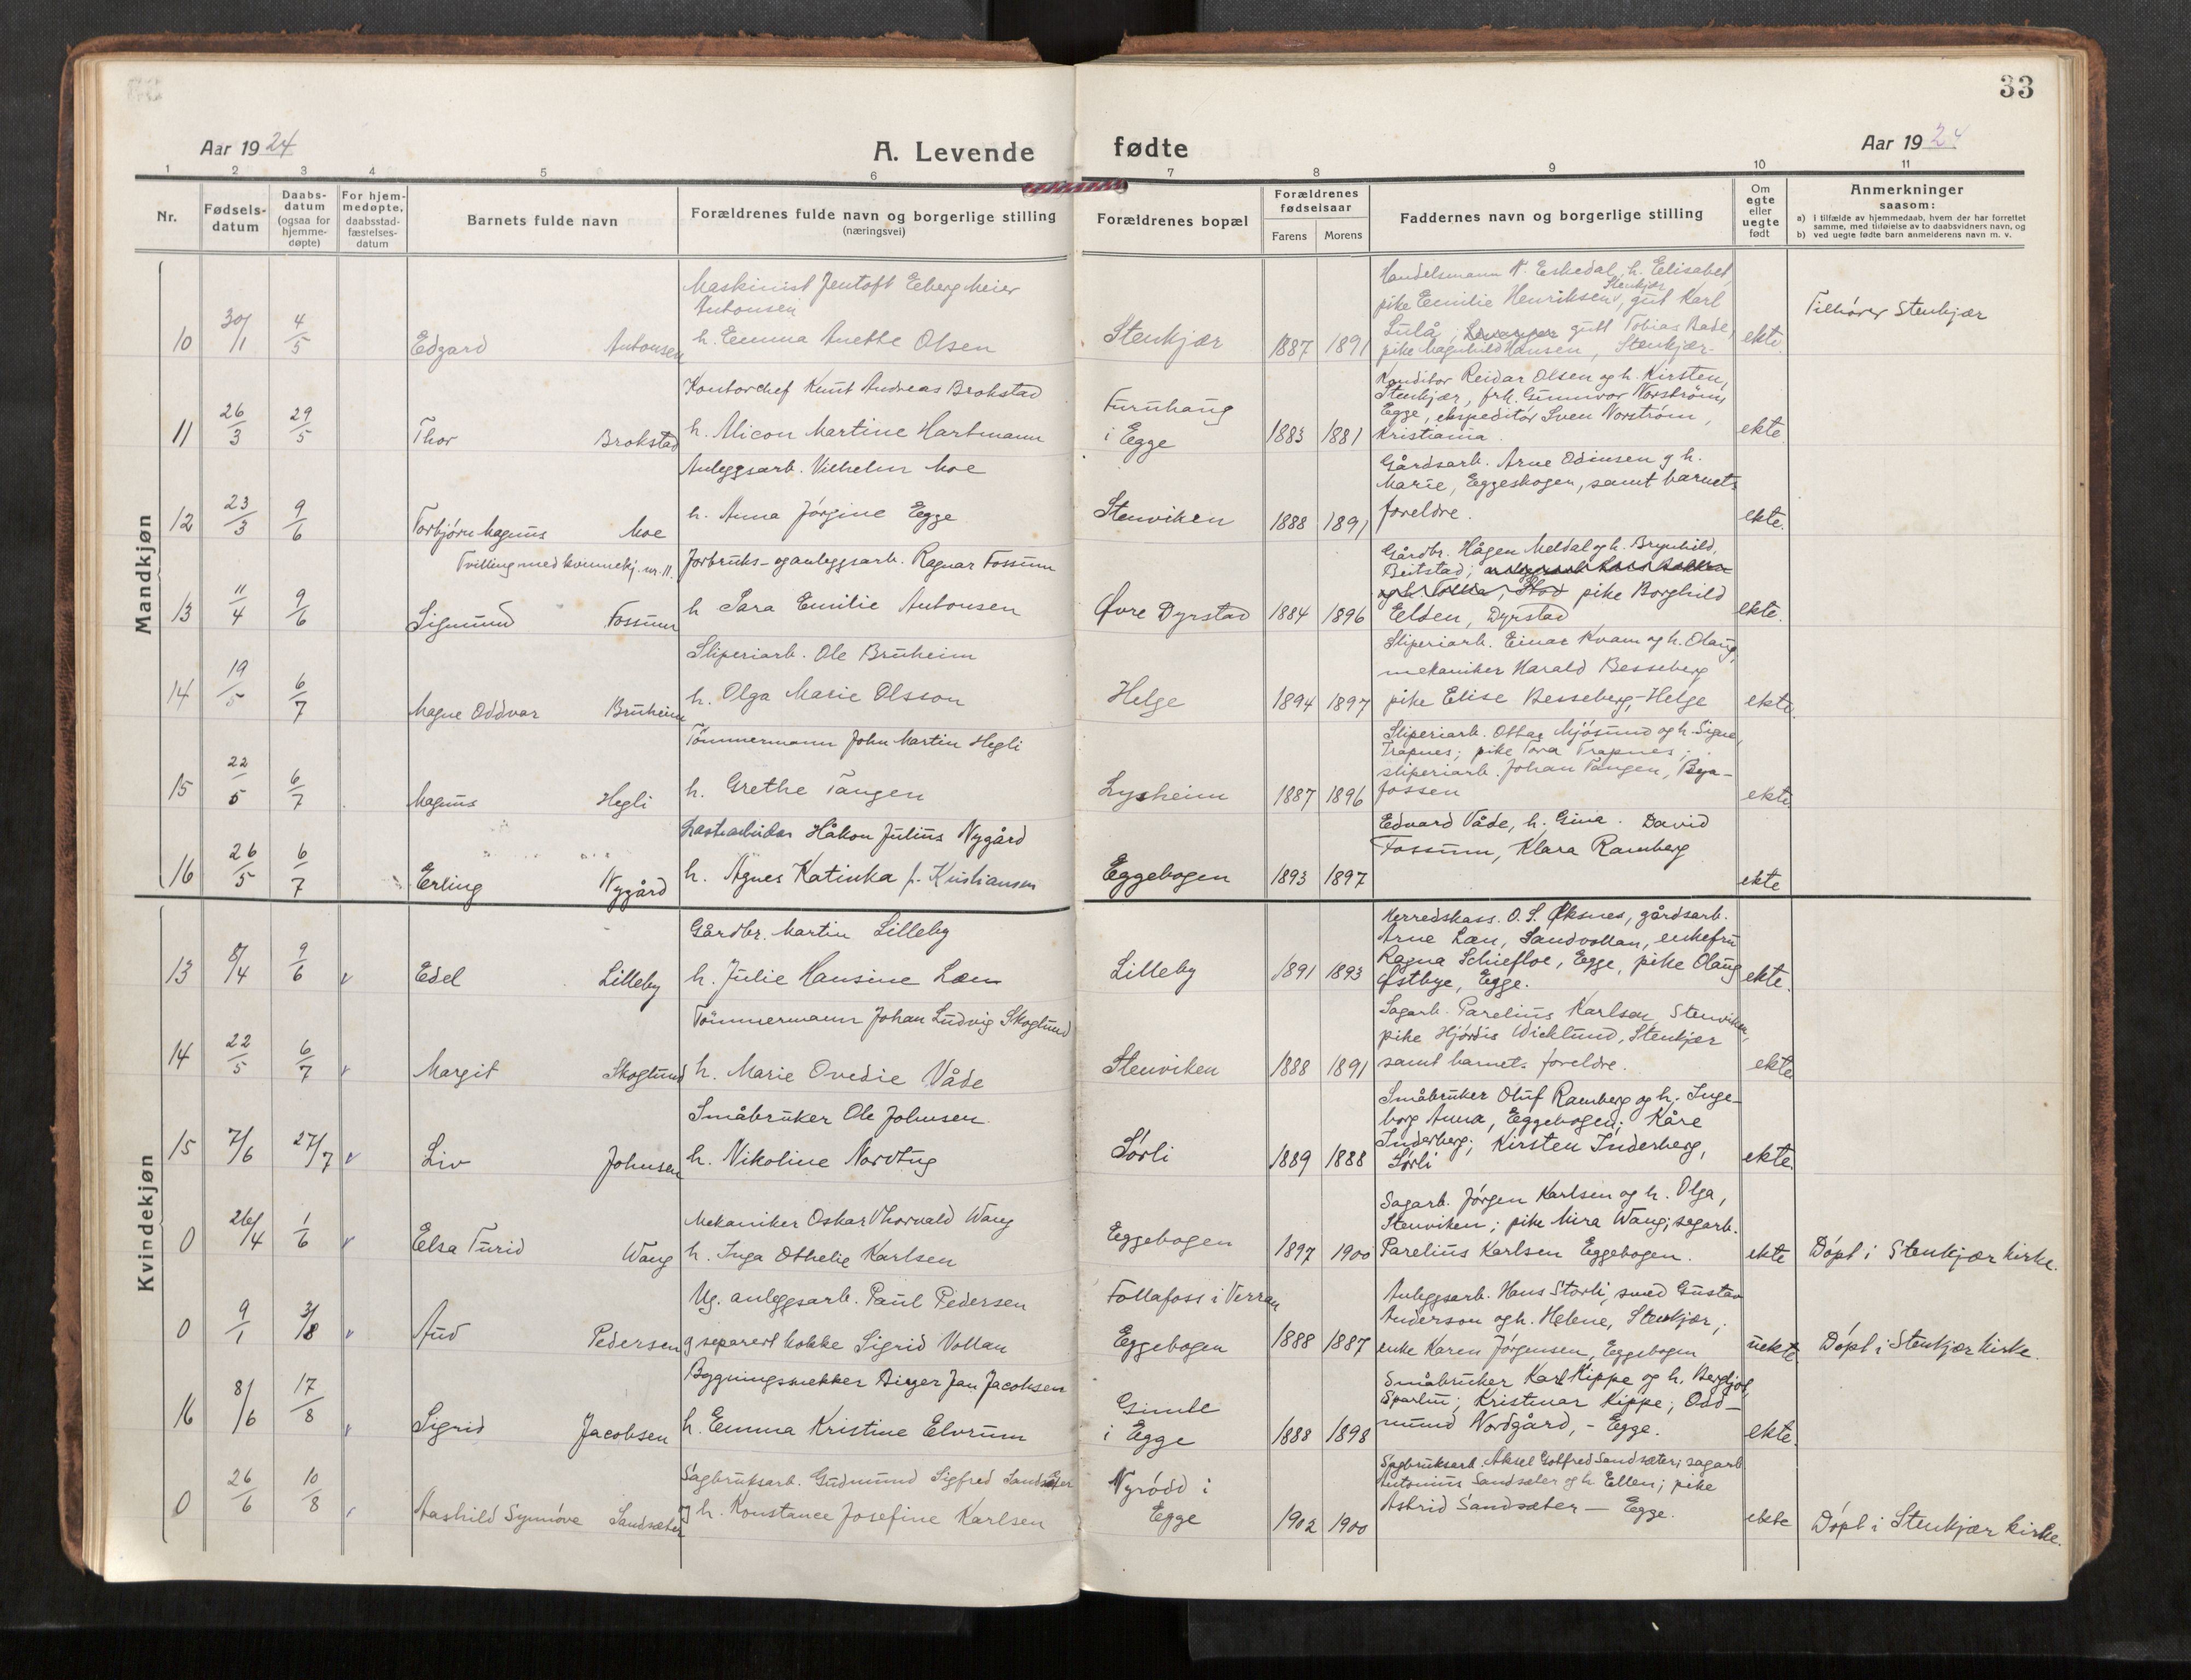 33
Aar 1924
A. Levende fødte
Aar 1924
1 2 3 4 5 6 7 8 9 10 11
Nr.
Fødsels-
datum
Daabs-
datum
(ogsaa for
hjemme-
døpte)
For hjem-
medøpte,
daabsstad-
fæstelses-
datum
Barnets fulde navn
Forældrenes fulde navn og borgerlige stilling
(næringsvei)
Forældrenes bopæl
Forældrenes
fødselsaar
Farens Morens
Faddernes navn og borgerlige stilling
Om
egte
eller
uegte
født
Anmerkninger
saasom:
a) i tilfælde av hjemmedaab, hvem der har forrettet
samme, med tilføielse av to daabsvidners navn, og
b) ved uegte fødte barn anmelderens navn m. v.
Mandkjøn
10 30/1 4/5 Edgard Antonsen
Maskinist Jentoft Eeberg Meier
Antonsen
h. Emma Anette Olsen
Stenkjær 1887 1891
Handelsmann N. Eskedal, h. Elisabet,
Stenkjær
pike Emilie Henriksen, gut Karl
Lulå, gutt Tobias Bade,
pike Magnhild Hansen, Stenkjær-
ekte
Tilhører Stenkjær
11 26/3 29/5 Thor Brokstad
Kontorchef Knut Andreas Brokstad
h. Alicon Martine Hartmann
Furuhaug
i Egge
1883 1881
Konditor Reidar Olsen og h. Kirsten,
Stenkjær, frk. Gunnvor Norstrøm,
Egge, ekspeditør Sven Norstrøm,
Kristiania.
ekte
12 23/3 9/6 Torbjørn Magnus Moe
Tvilling med kvinnekj. nr. 11.
Anleggsarb. Vilhelm Moe
h. Anna Jørgine Egge
Stenviken 1888 1891
Gårdsarb. Arne Odinsen og h.
Marie, Eggeskogen, samt barnets
foreldre.
ekte.
13 11/4 9/6 Sigmund Fossum
Jorbruks- og anleggsarb. Ragnar Fossum
h Sara Emilie Antonsen
Øvre Dyrstad 1884 1896
Gårdbr. Hågen Meldal og h. Brynhild,
Beitstad;
pike Borghild
Elden, Dyrstad
ekte.
14 19/5 6/7 Magne Oddvar Bruheim
Sliperiarb. Ole Bruheim
h. Olga Marie Olsson
Helge 1894 1897
Sliperiarb. Einar Kvam og h. Olaug,
mekaniker Harald Besseberg
pike Elise Besseberg, - Helge
ekte.
15 22/5 6/7 Magnus Hegli
Tømmermann John Martin Hegli
h. Grethe Tangen
Lysheim 1887 1896
Sliperiarb. Ottar Mjøsund og h. Signe,
Trapnes; pike Tora Trapnes;
sliperiarb. Johan Tangen, Bya-
fossen
ekte
16 26/5 6/7 Erling Nygård
Lastearbeider Håkon Julius Nygård
h. Agnes Katinka f. Kristiansen
Eggebogen 1893 1897
Edvard Våde, h. Gina. David
Fossum, Klara Ramberg
ekte
Kvindekjøn
13 8/4 9/6 v Edel Lilleby
Gårdbr. Martin Lilleby
h. Julie Hansine Læn
Lilleby 1891 1893
Herredskass. O. S. Øksnes, gårdsarb.
Arne Læn, Sandvollan, enkefru
Ragna Schiefloe, Egge, pike Olaug
Østbye, Egge.
ekte.
14 22/5 6/7 v Margit Skoglund
Tømmermann Johan Ludvig Skoglund
h. Marie Ovedie Våde
Stenviken 1888 1891
Sagarb. Parelius Karlsen, Stenviken,
pike Hjørdis Wicklund, Stenkjær
samt barnets foreldre.
ekte
15 7/6 27/7 v Liv Johnsen
Småbruker Ole Johnsen.
h. Nikoline Nordtug
Sørli 1889 1888
Småbruker Oluf Ramberg og h. Inge-
borg Anna, Eggebogen; Kåre
Inderberg; Kirsten Inderberg,
Sørli
ekte.
0 26/4 1/6 v Elsa Turid Wang
Mekaniker Oskar Thorvald Wang
h. Inga Othelie Karlsen
Eggebogen 1897 1900
Sagarb. Jørgen Karlsen og h. Olga,
Stenviken; pike Mira Wang; sagarb.
Parelius Karlsen Eggebogen.
ekte
Døpt i Stenkjær kirke.
0 9/1 3/8 v Aud Pedersen
Ug. anleggsarb. Paul Pedersen
og separert kokke Sigrid Vollan
Follafoss i Verran
Eggebogen
1888 1887
Anleggsarb. Hans Storli, smed Gustav
Anderson og h. Helene, Stenkjær;
enke Karen Jørgensen, Eggebogen
uekte
Døpt i Stenkjær kirke.
16 8/6 17/8 v Sigrid Jacobsen
Bygningssnekker Birger Jan Jacobsen
h. Emma Kristine Elvrum
Gimle
i Egge
1888 1898
Småbruker Karl Kippe og h. Bergljot,
Sparbu; Kristmar Kippe; Odd-
mund Nordgård, - Egge.
ekte.
0 26/6 10/8 Aashild Synnøve Sandsæter
Sagbruksarb. Gudmund Sigfred Sandsæter
og h. Konstance Josefine Karlsen
Nyrødd i
Egge
1902 1900
Sagbruksarb. Aksel Gotfred Sandsæter; sagarb
Antonius Sandsæter og h. Ellen; pike
Astrid Sandsæter - Egge.
ekte
Døpt i Stenkjær kirke.